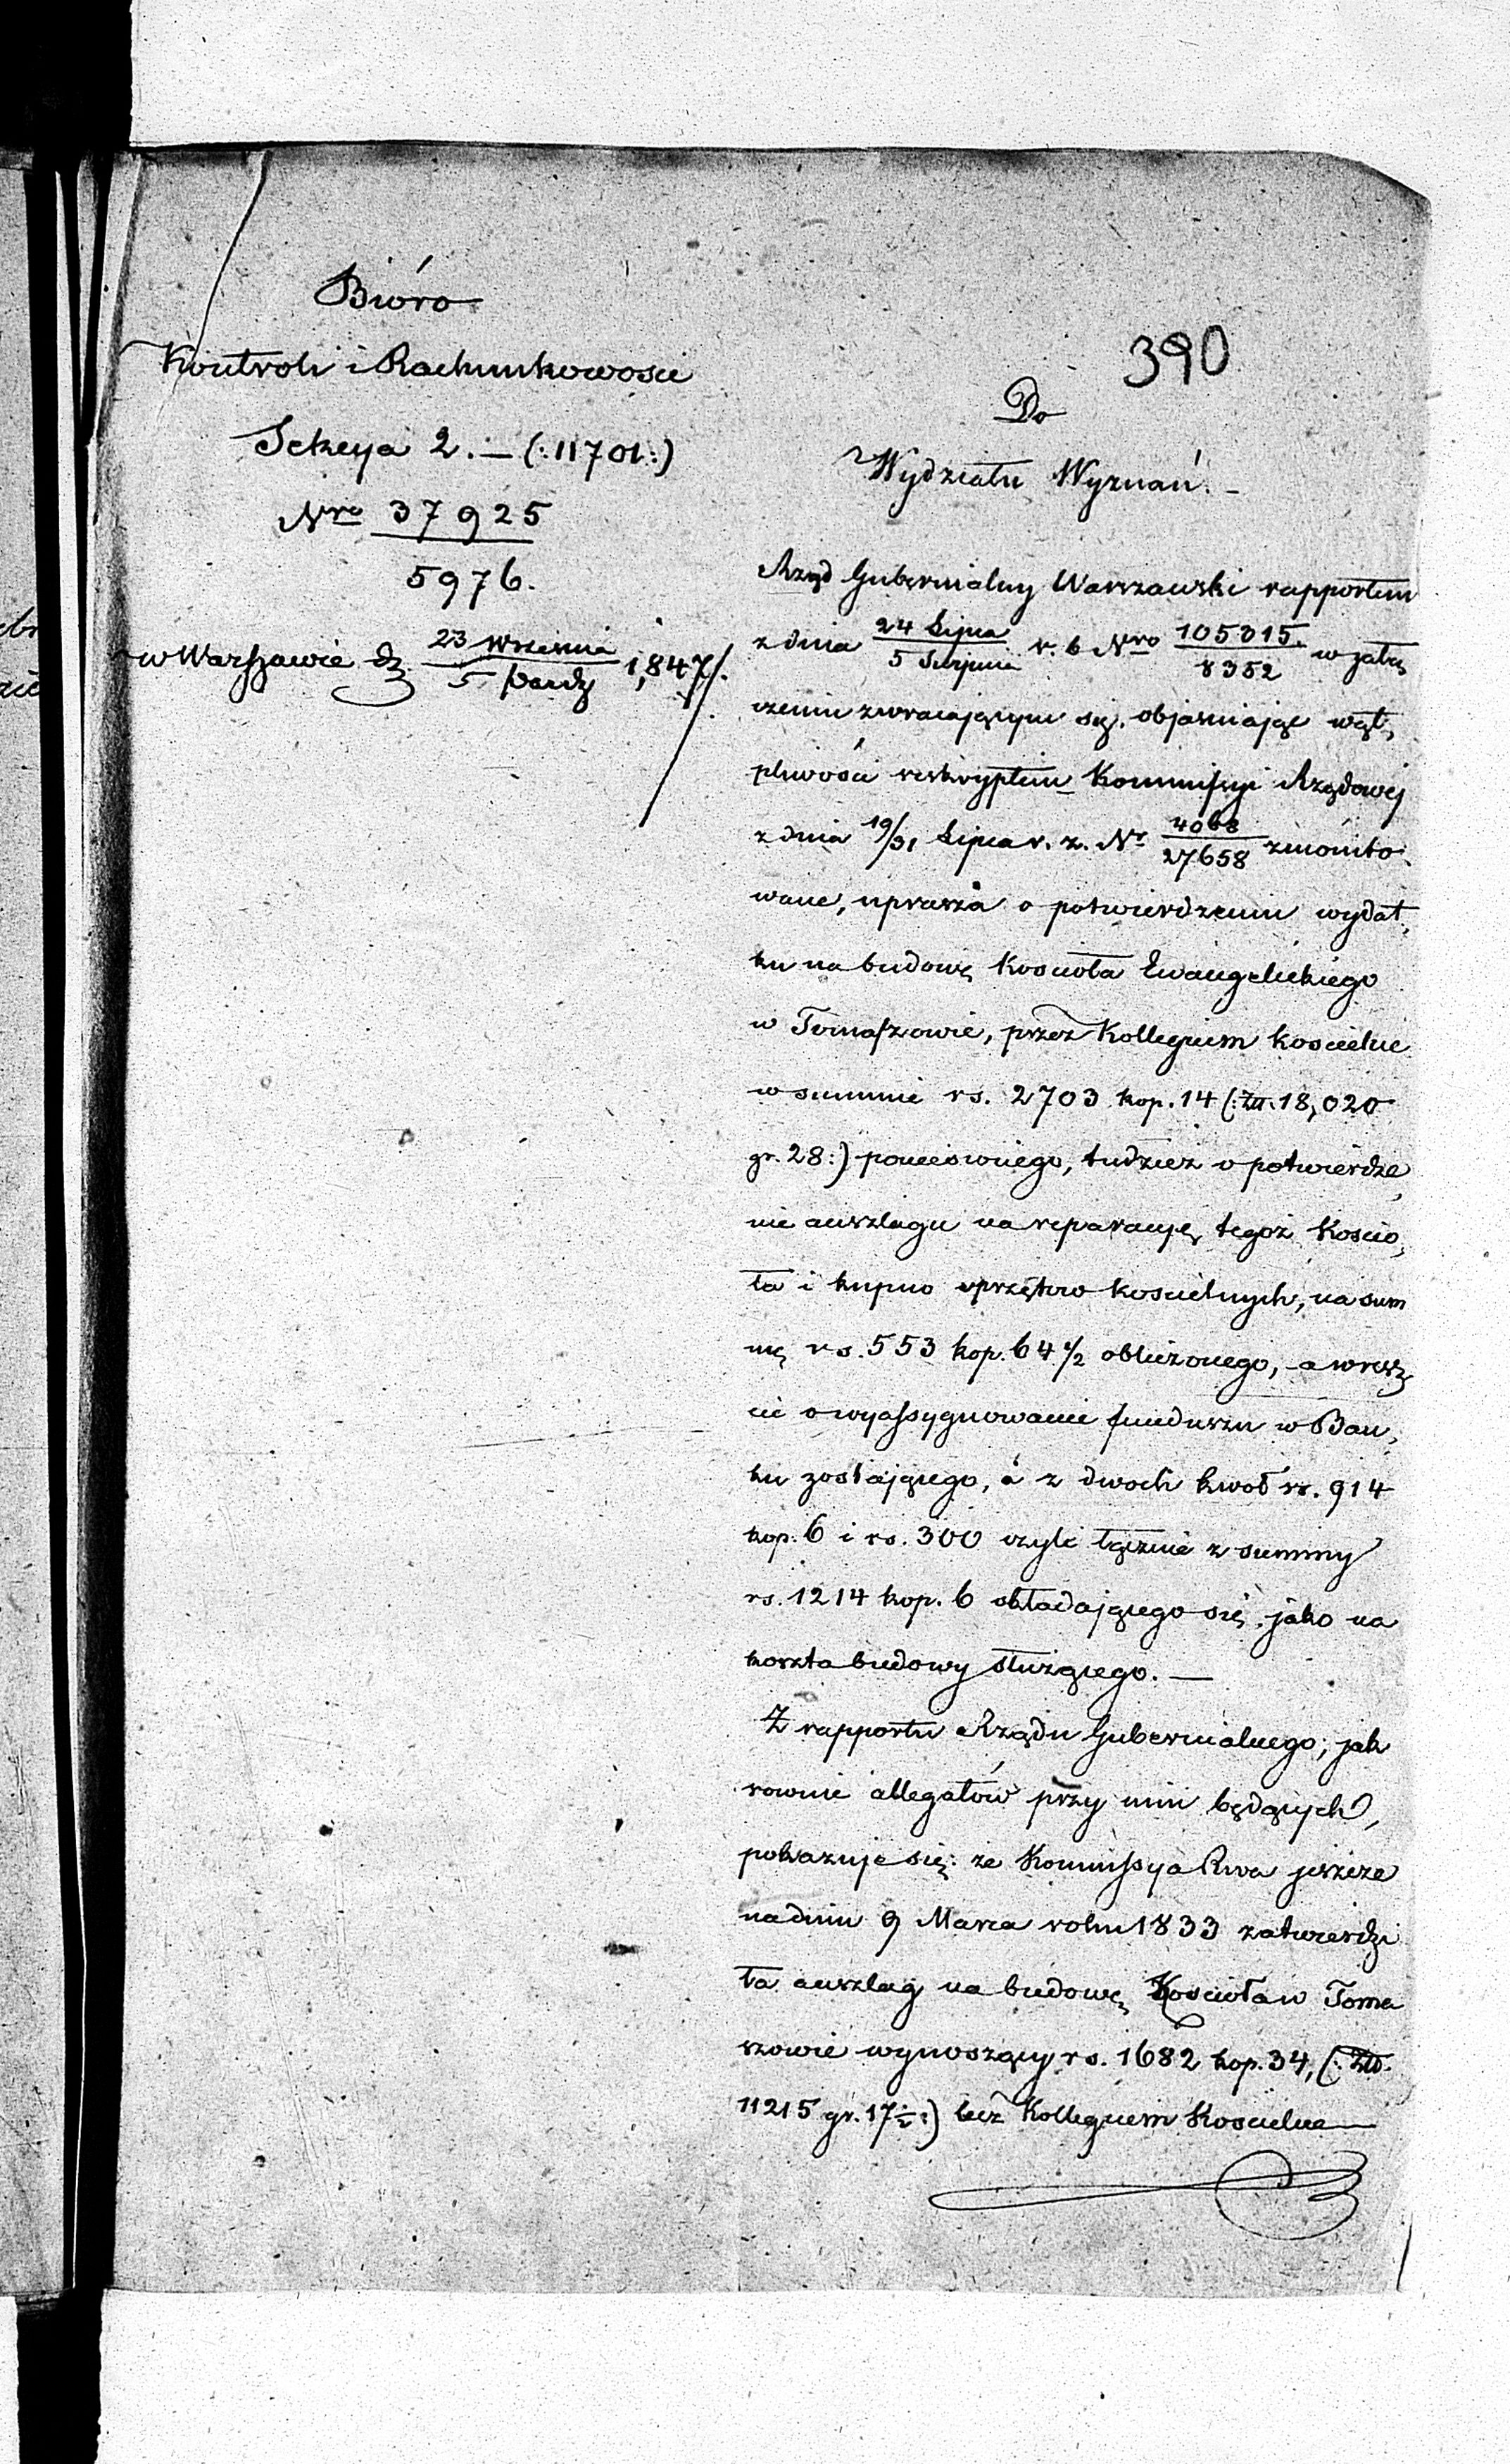 Bióro
Kontroli i Rachunkowości
Sekcya 2. — (: 11701 :)
Nro 37925
5976.
w Warszawie d. 23 Września / 5 Paźdz 1,847 /.
390
Do
Wydziału Wyznań. —
Rząd Gubernialny Warszawski rapportem
z dnia 24 Lipca / 5 Sierpnia r. b Nro 105315. / 8352 w załą,
czeniu zwracającym się, objasniając wąt,
pliwości reskryptem Kommissyi Rządowej
z dnia 19/31 Lipca r. z. Nr 4068 / 27658 zmonito,
wane, uprasza o potwierdzenie wydat,
ku na budowę Kościoła Ewangelickiego
w Tomaszowie, przez Kollegium kościelne
w summie rs. 2703 kop. 14 (: Złt. 18,020
gr. 28 :) poniesionego, tudzież o potwierdze,
nie anszlagu na reparacyę tegoż Kościo,
ła i kupno sprzętów kościelnych, na sum
mę rs. 553 kop. 64 1/2 obliczonego, - a wresz,
cie o wyassygnowanie funduszu w Ban,
ku zostającego, a z dwoch kwot rs. 914
kop. 6 i rs. 300 czyli łącznie z summy
rs. 1214 kop. 6 składającego się, jako na
koszta budowy służącego. —
Z rapportu Rządu Gubernialnego, jak
rownie allegatów przy nim będących,
pokazuje się: że Kommissya Rwa jeszcze
na dniu 9 Marca roku 1833 zatwierdzi
ła anszlag na budowę Kościoła w Toma
szowie wynoszący rs. 1682 kop. 34, (: Złt.
11215 gr. 17 :) lecz Kollegium Kościelne